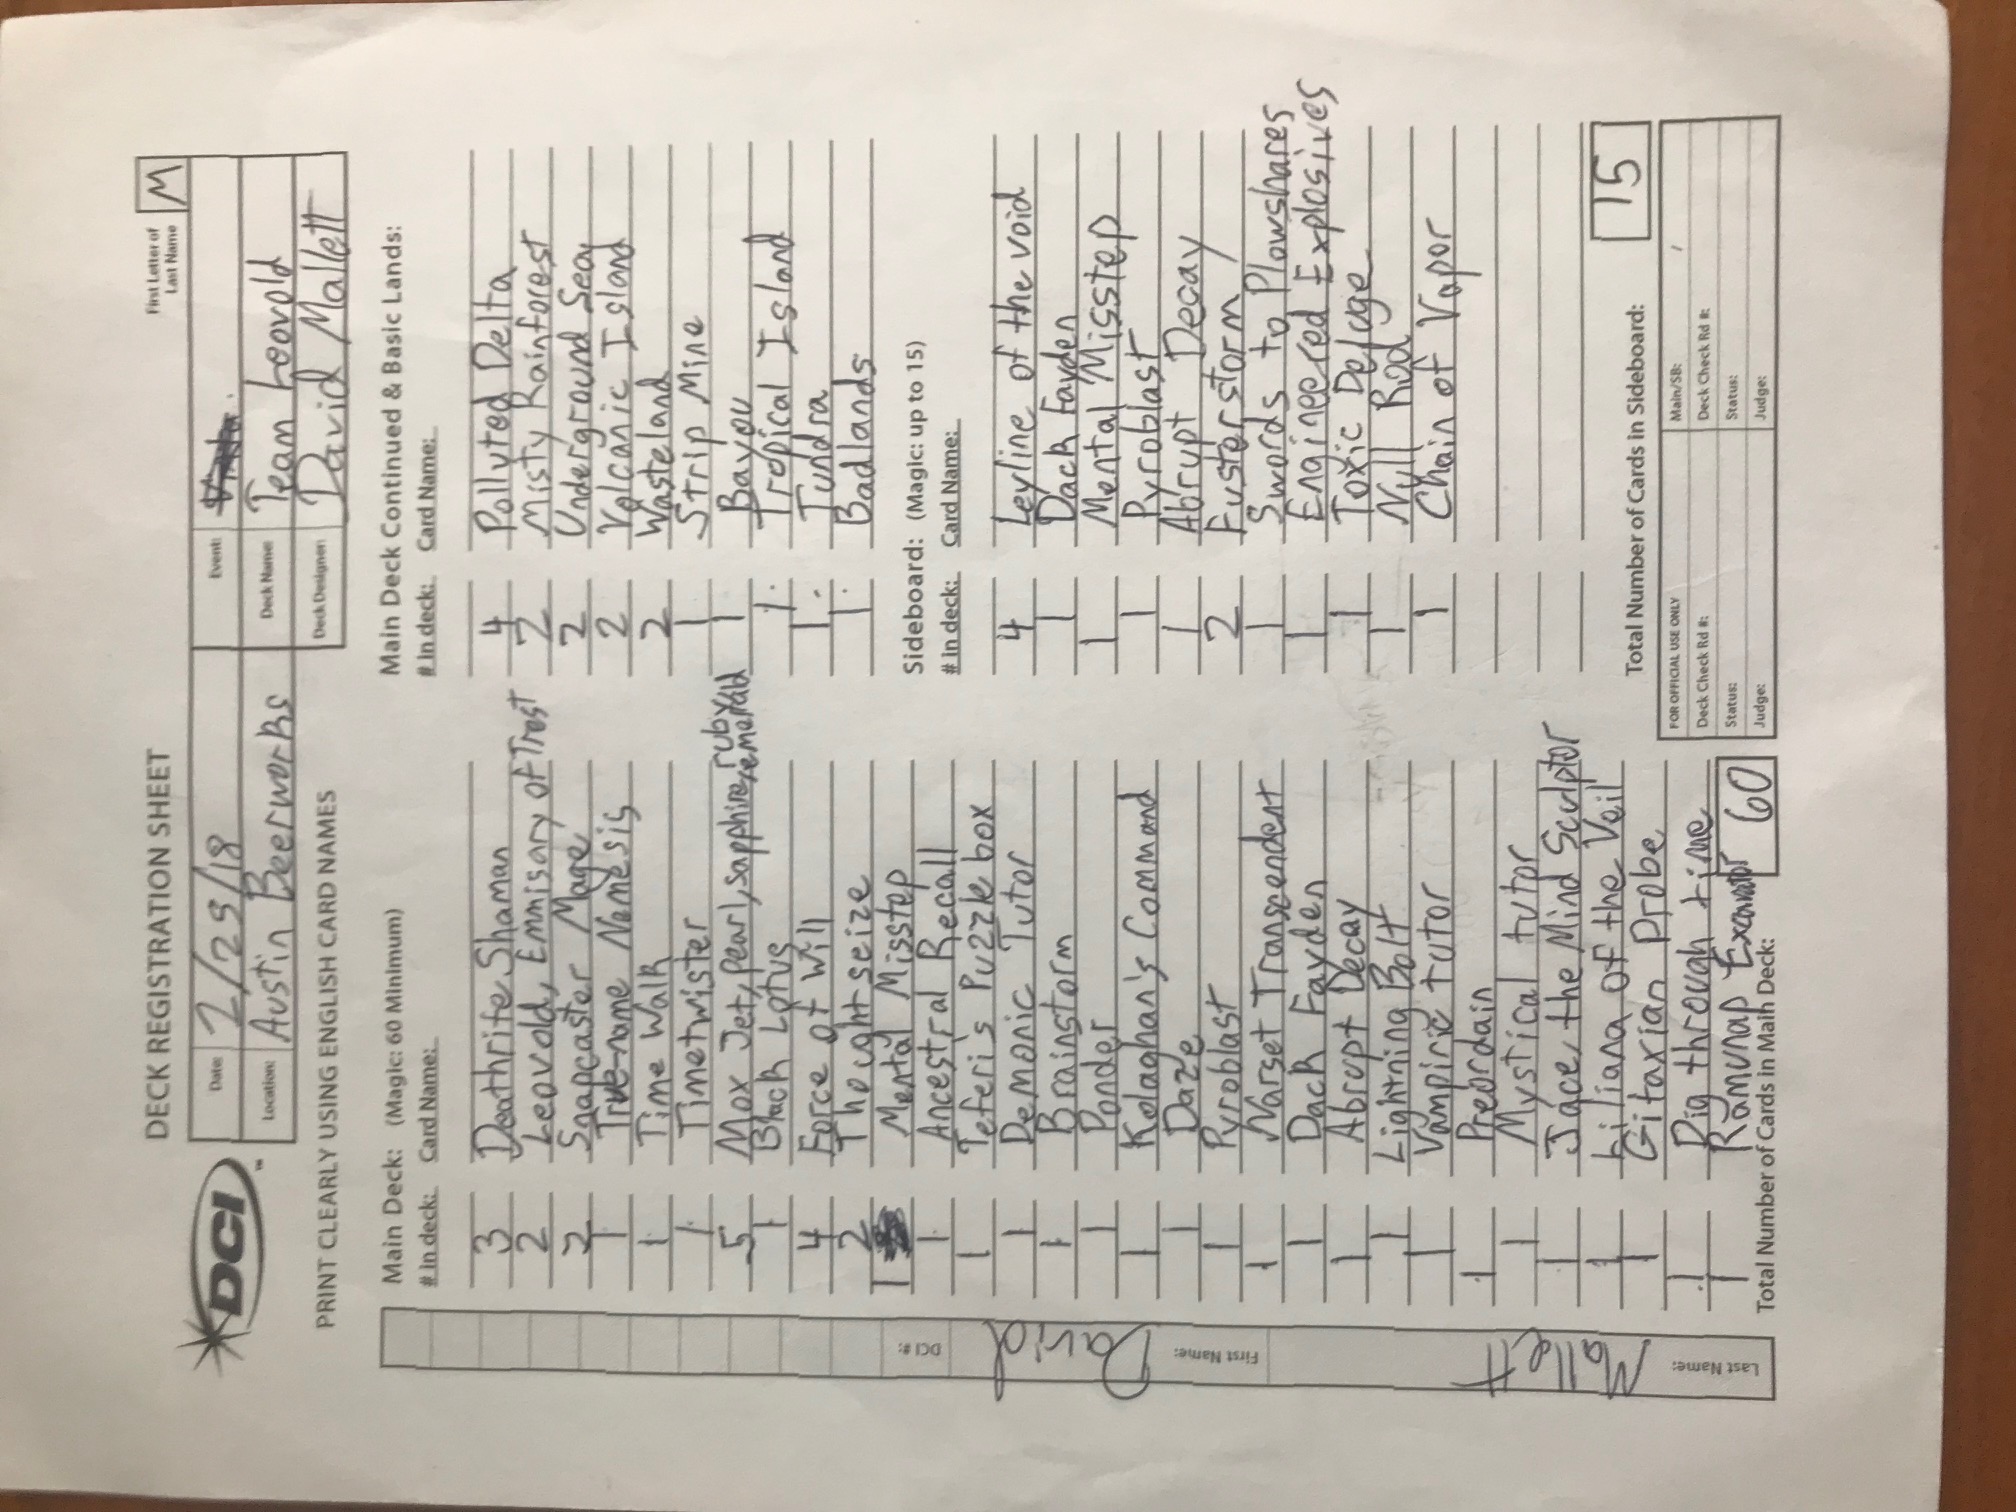 DECK REGISTRATION SHEET
First Letter of Last Name M
DCI
Date: 2/25/18
Event:
Location: Austin Beerworks
Deck Name: Team Leovold
PRINT CLEARLY USING ENGLISH CARD NAMES
Deck Designer: David Mallett
Main Deck: (Magic: 60 Minimum)
# in deck: Card Name:
3 Deathrite Shaman
2 Leovold, Emmisary of Trest
2 Snapcaster Mage
1 True-name Nemesis
1 Time Walk
1 Timetwister
5 Mox Jet, pearl, sapphire, ruby, emerald
1 Black Lotus
4 Force of Will
2 Thoughtseize
1 Mental Misstep
1 Ancestral Recall
1 Teferi's Puzzle box
1 Demonic Tutor
1 Brainstorm
1 Ponder
1 Kolaghan's Command
1 Daze
1 Pyroblast
1 Narset Transcendent
1 Dack Fayden
1 Abrupt Decay
1 Lightning Bolt
1 Vampiric tutor
1 Preordain
1 Mystical tutor
1 Jace, the Mind Sculptor
1 Liliana of the Veil
1 Gitaxian Probe
1 Dig through time
1 Ramunap Excavator
Total Number of Cards in Main Deck: 60
Main Deck Continued & Basic Lands:
# in deck: Card Name:
4 Polluted Delta
2 Misty Rainforest
2 Underground Sea
2 Volcanic Island
2 Wasteland
1 Strip Mine
1 Bayou
1 Tropical Island
1 Tundra
1 Badlands
Sideboard: (Magic: up to 15)
# in deck: Card Name:
4 Leyline of the void
1 Dack Fayden
1 Mental Misstep
1 Pyroblast
1 Abrupt Decay
2 Flusterstorm
1 Swords to Plowshares
1 Engineered Explosives
1 Toxic Deluge
1 Null Rod
1 Chain of Vapor
Total Number of Cards in Sideboard: 15
FOR OFFICIAL USE ONLY
Main/SB: /
Deck Check Rd #:
Deck Check Rd #:
Status:
Status:
Judge:
Judge:
Last Name: Mallett First Name: David DCI #: